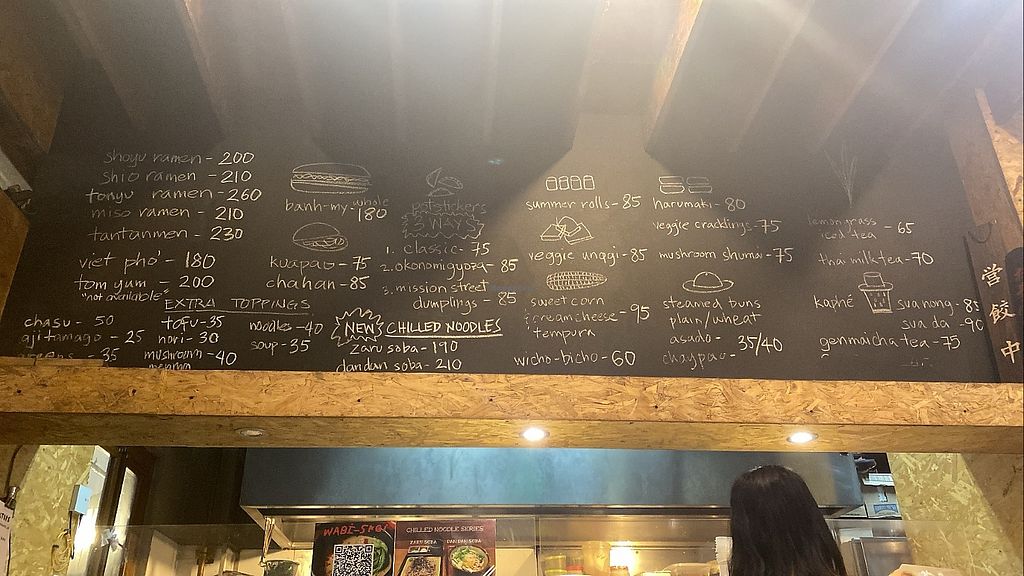 shoyu ramen - 200
shio ramen - 210
tonyu ramen - 260
miso ramen - 210
tantanmen - 230
viet pho' - 180
tom yum - 200
"not available"
EXTRA TOPPINGS
chasu - 50
ajitamago - 25
greens - 35
tofu - 35
nori - 30
mushroom - 40
menma
noodles - 40
soup - 35
banh-my - whole
180
kuapao - 75
chahan - 85
potstickers
NAY
1. classic - 75
2. okonomigyoza - 85
3. mission street
dumplings - 85
NEW CHILLED NOODLES
zaru soba - 190
dandan soba - 210
summer rolls - 85
veggie unagi - 85
sweet corn
creamcheese - 95
tempura
wicho-bicho - 60
harumaki - 80
veggie cracklings - 75
mushroom shumai - 75
steamed buns
plain/wheat
asado - 35/40
chaypao -
lemongrass
iced tea - 65
thai milktea - 70
kaphé
sua nong - 85
sua da - 90
genmaicha tea - 75
営
餃
中
WABI-SABI
CHILLED NOODLE SERIES
ZARU SOBA
DAN DAN SOBA